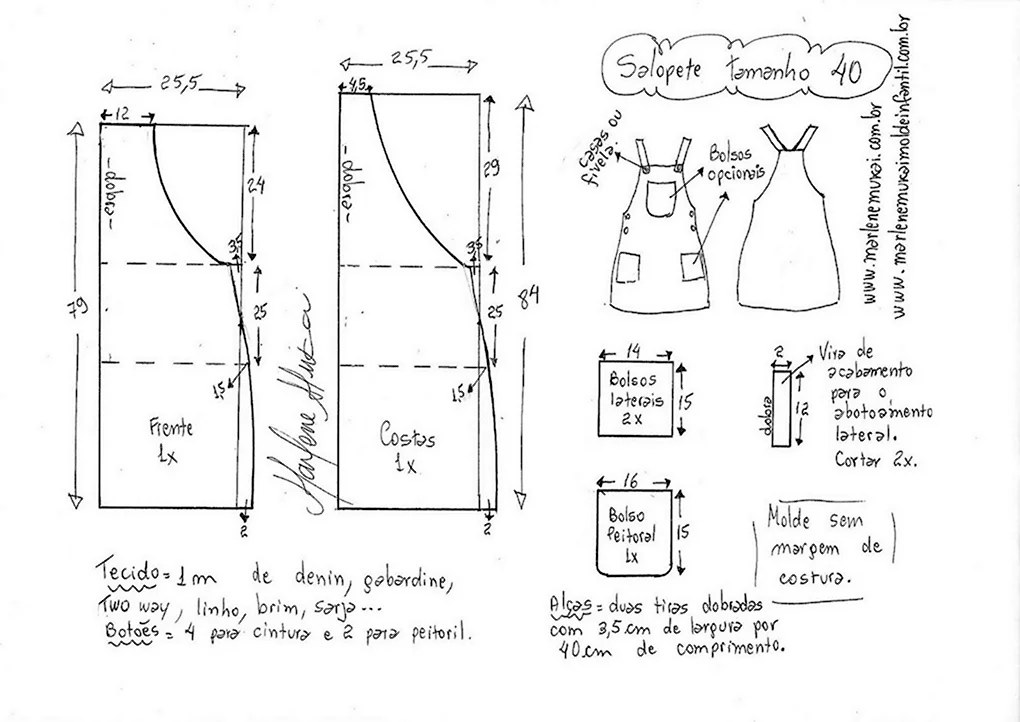 Salopete tamanho 40
www.marlenemukai.com.br
www.marlenemukaimoldeinfantil.com.br
25,5
12
-dobra-
24
3,5
25
79
1,5
Frente
1x
2
25,5
4,5
-dobra-
29
3,5
25
84
1,5
Costas
1x
2
casas ou
fivela.
Bolsos
opcionais
14
Bolsos
laterais
2x
15
2
dobra
12
Vira de
acabamento
para o
abotoamento
lateral.
Cortar 2x.
16
Bolso
Peitoral
1x
15
Molde sem
margem de
costura.
Tecido = 1m de denin, gabardine,
Two way, linho, brim, sarja...
Botões = 4 para cintura e 2 para peitoril.
Alças = duas tiras dobradas
com 3,5cm de largura por
40cm de comprimento.